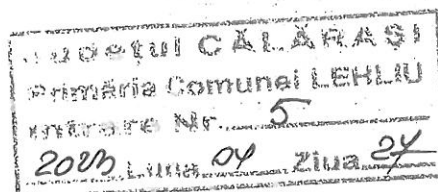 Județul CĂLĂRAȘI
Primăria Comunei LEHLIU
Intrare Nr. 5
2023 Luna 04 Ziua 24